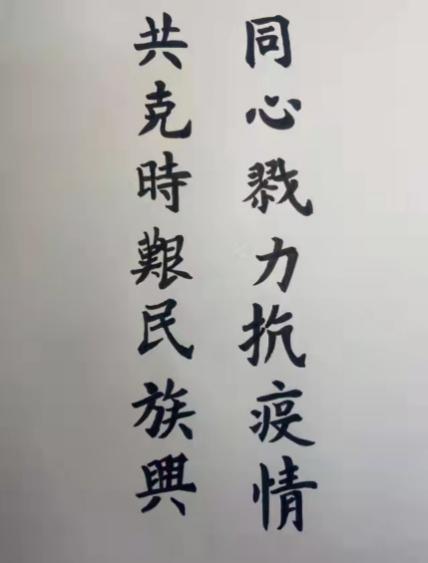 同心戮力抗疫情
共克時艱民族興